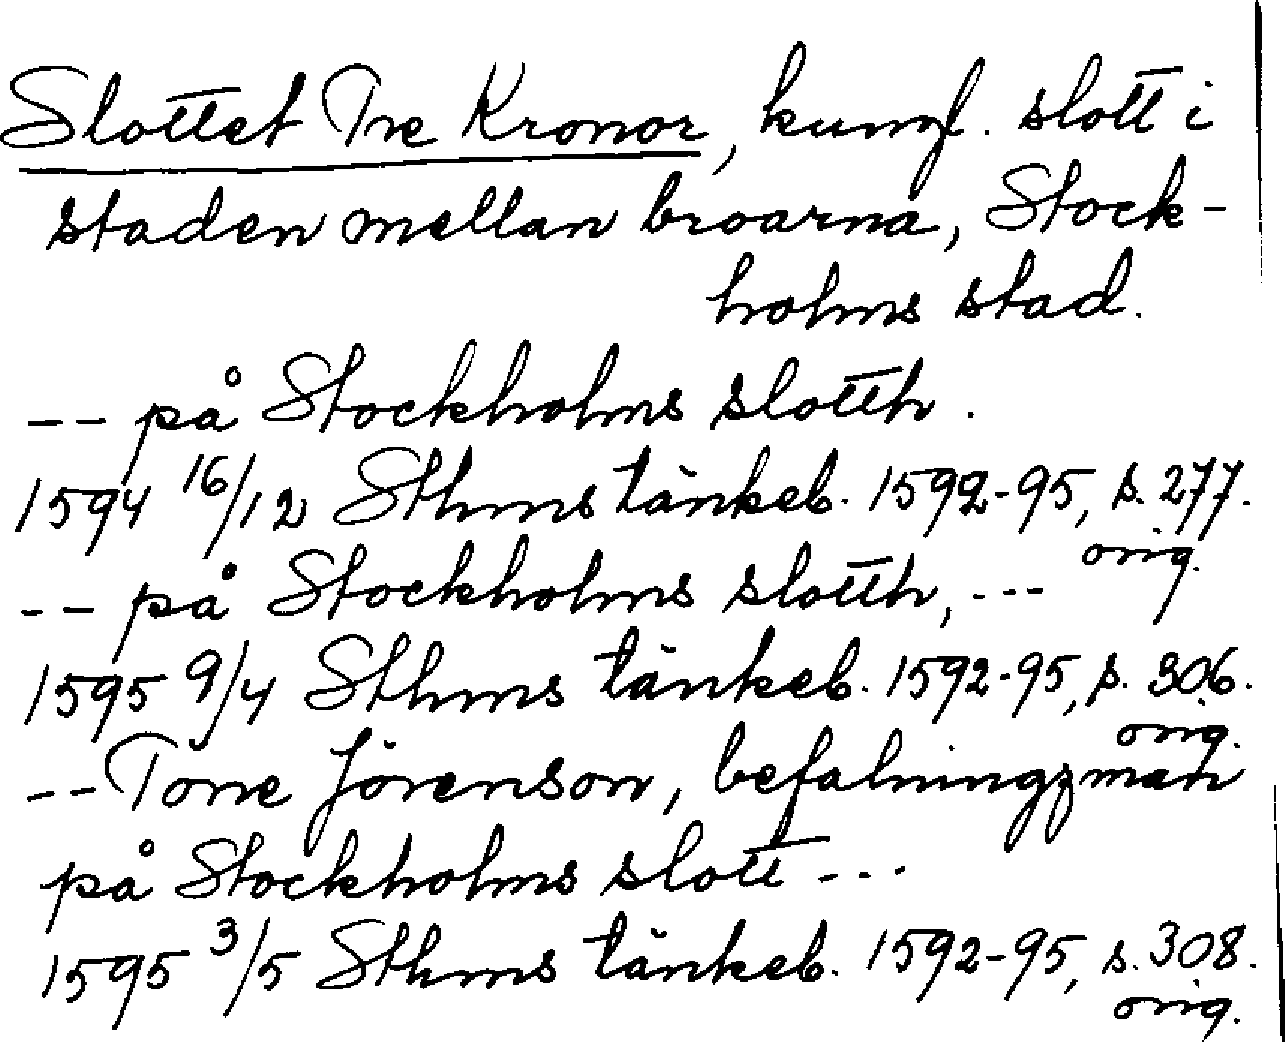 Slottet Tre Kronor, kungl. slott i
staden mellan broarna, Stock-
holms stad.
-- på Stockholms slotth.
1594 16/12 Sthms tänkeb. 1592-95, s. 277.
orig.
-- på Stockholms slotth, ---
1595 9/4 Sthms tänkeb. 1592-95, s. 306.
orig.
-- Töne Jörenson, befalningzman
på Stockholms slott ---
1595 3/5 Sthms tänkeb. 1592-95, s. 308.
orig.